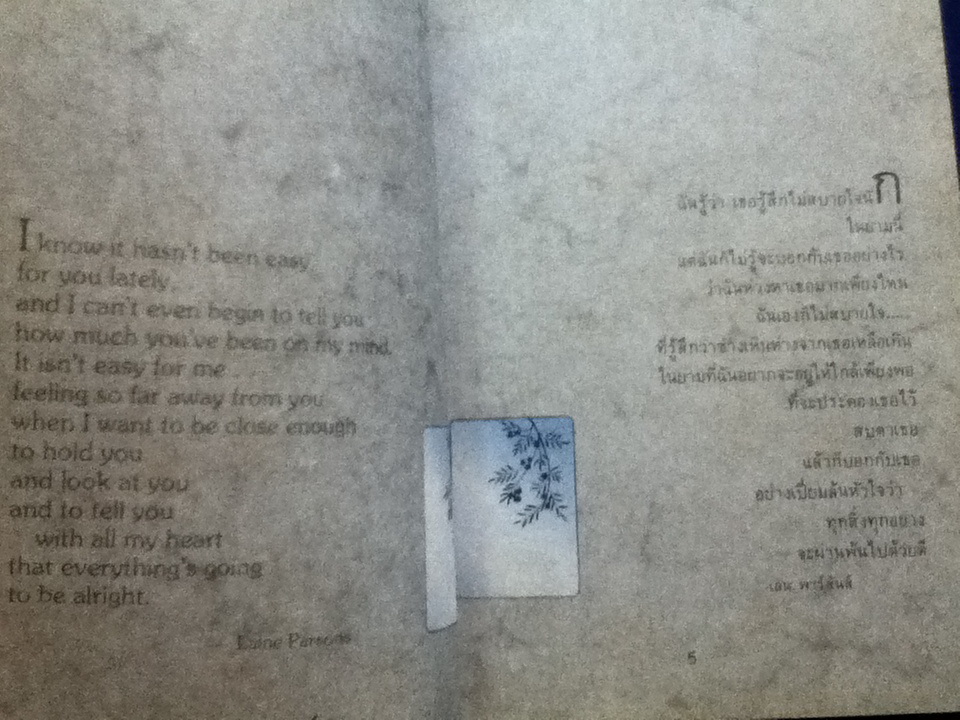 I know it hasn't been easy
for you lately
and I can't even begin to tell you
how much you've been on my mind.
It isn't easy for me
feeling so far away from you
when I want to be close enough
to hold you
and look at you
and to tell you
with all my heart
that everything's going
to be alright.
Laine Parsons
ฉันรู้ว่า เธอรู้สึกไม่สบายใจนัก
ในยามนี้
แต่ฉันก็ไม่รู้จะบอกกับเธออย่างไร
ว่าฉันห่วงหาเธอมากเพียงไหน
ฉันเองก็ไม่สบายใจ.....
ที่รู้สึกว่าช่างเหินห่างจากเธอเหลือเกิน
ในยามที่ฉันอยากจะอยู่ให้ใกล้เพียงพอ
ที่จะประคองเธอไว้
สบตาเธอ
แล้วก็บอกกับเธอ
อย่างเปี่ยมล้นหัวใจว่า
ทุกสิ่งทุกอย่าง
จะผ่านพ้นไปด้วยดี
เลน พาร์สันส์
5